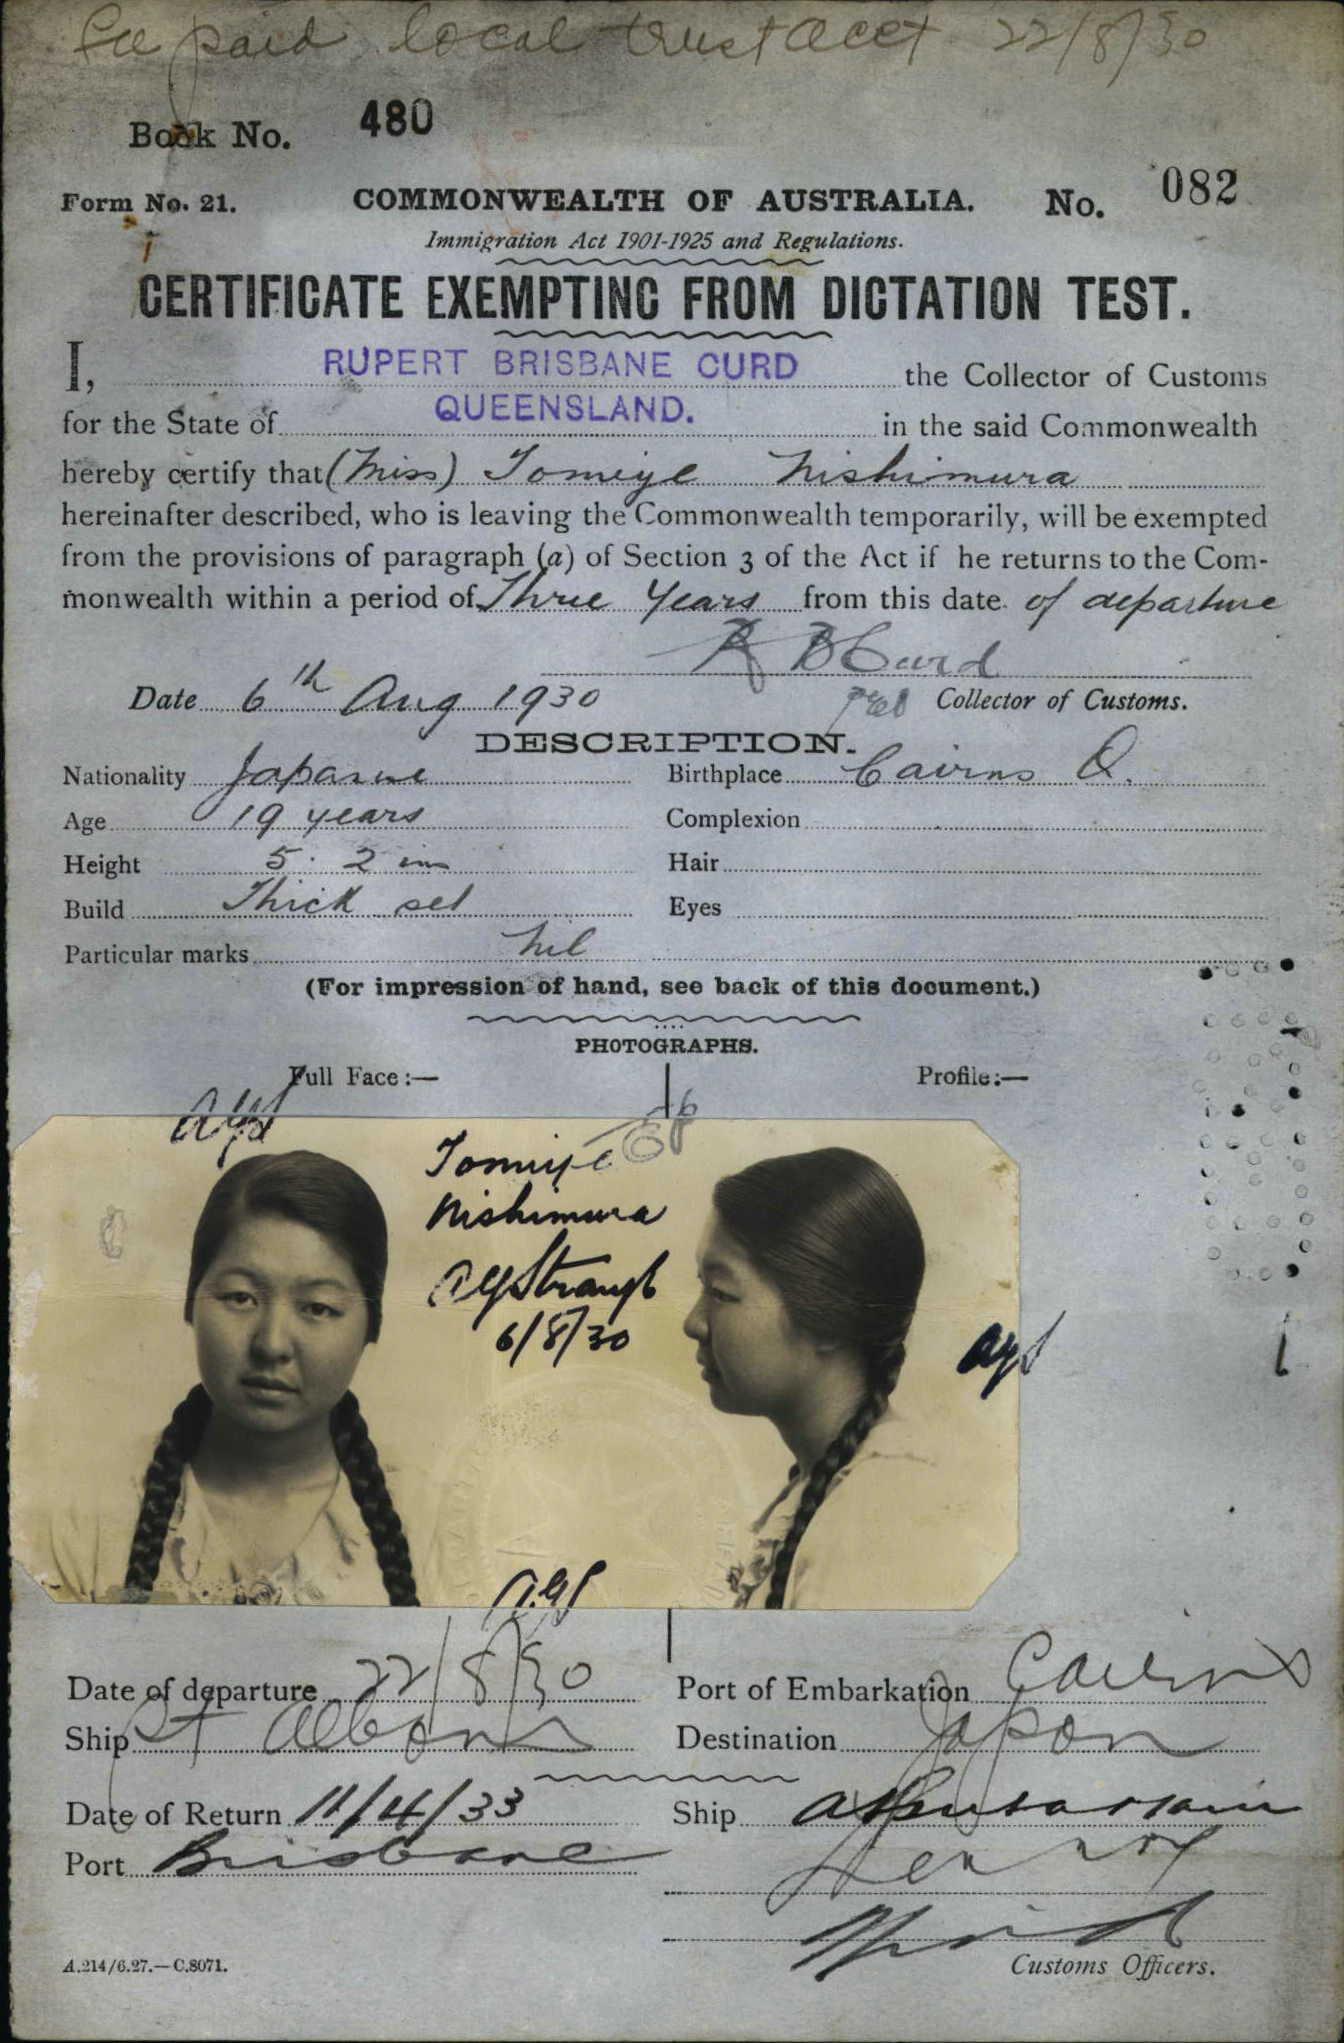 Fee paid local trust acct 22/8/30
Book No. 480
Form No. 21. COMMONWEALTH OF AUSTRALIA. No. 082
Immigration Act 1901-1925 and Regulations.
CERTIFICATE EXEMPTING FROM DICTATION TEST.
I, RUPERT BRISBANE CURD the Collector of Customs
for the State of QUEENSLAND. in the said Commonwealth
hereby certify that (Miss) Tomiye Nishimura
hereinafter described, who is leaving the Commonwealth temporarily, will be exempted
from the provisions of paragraph (a) of Section 3 of the Act if he returns to the Com-
monwealth within a period of Three Years from this date of departure
R B Curd
Date 6th Aug 1930 Collector of Customs.
DESCRIPTION.
Nationality Japanese Birthplace Cairns Q.
Age 19 years Complexion
Height 5. 2 ins Hair
Build Thick set Eyes
Particular marks nil
(For impression of hand, see back of this document.)
PHOTOGRAPHS.
Full Face:— Profile:—
Tomiye
Nishimura
6/8/30
Date of departure 22/8/30 Port of Embarkation Cairns
Ship St Albans Destination Japan
Date of Return 11/4/33 Ship
Port Brisbane
A.214/6.27.—C.8071. Customs Officers.